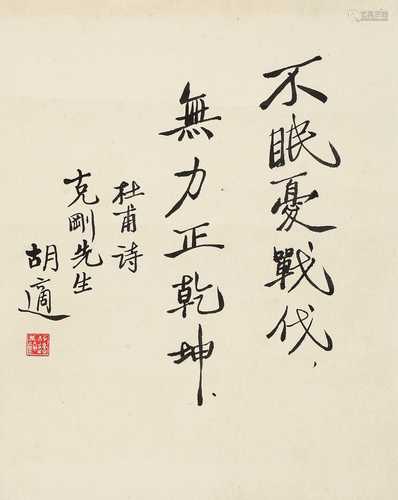 不眠憂戰伐，
無力正乾坤．
杜甫詩
克剛先生
胡適